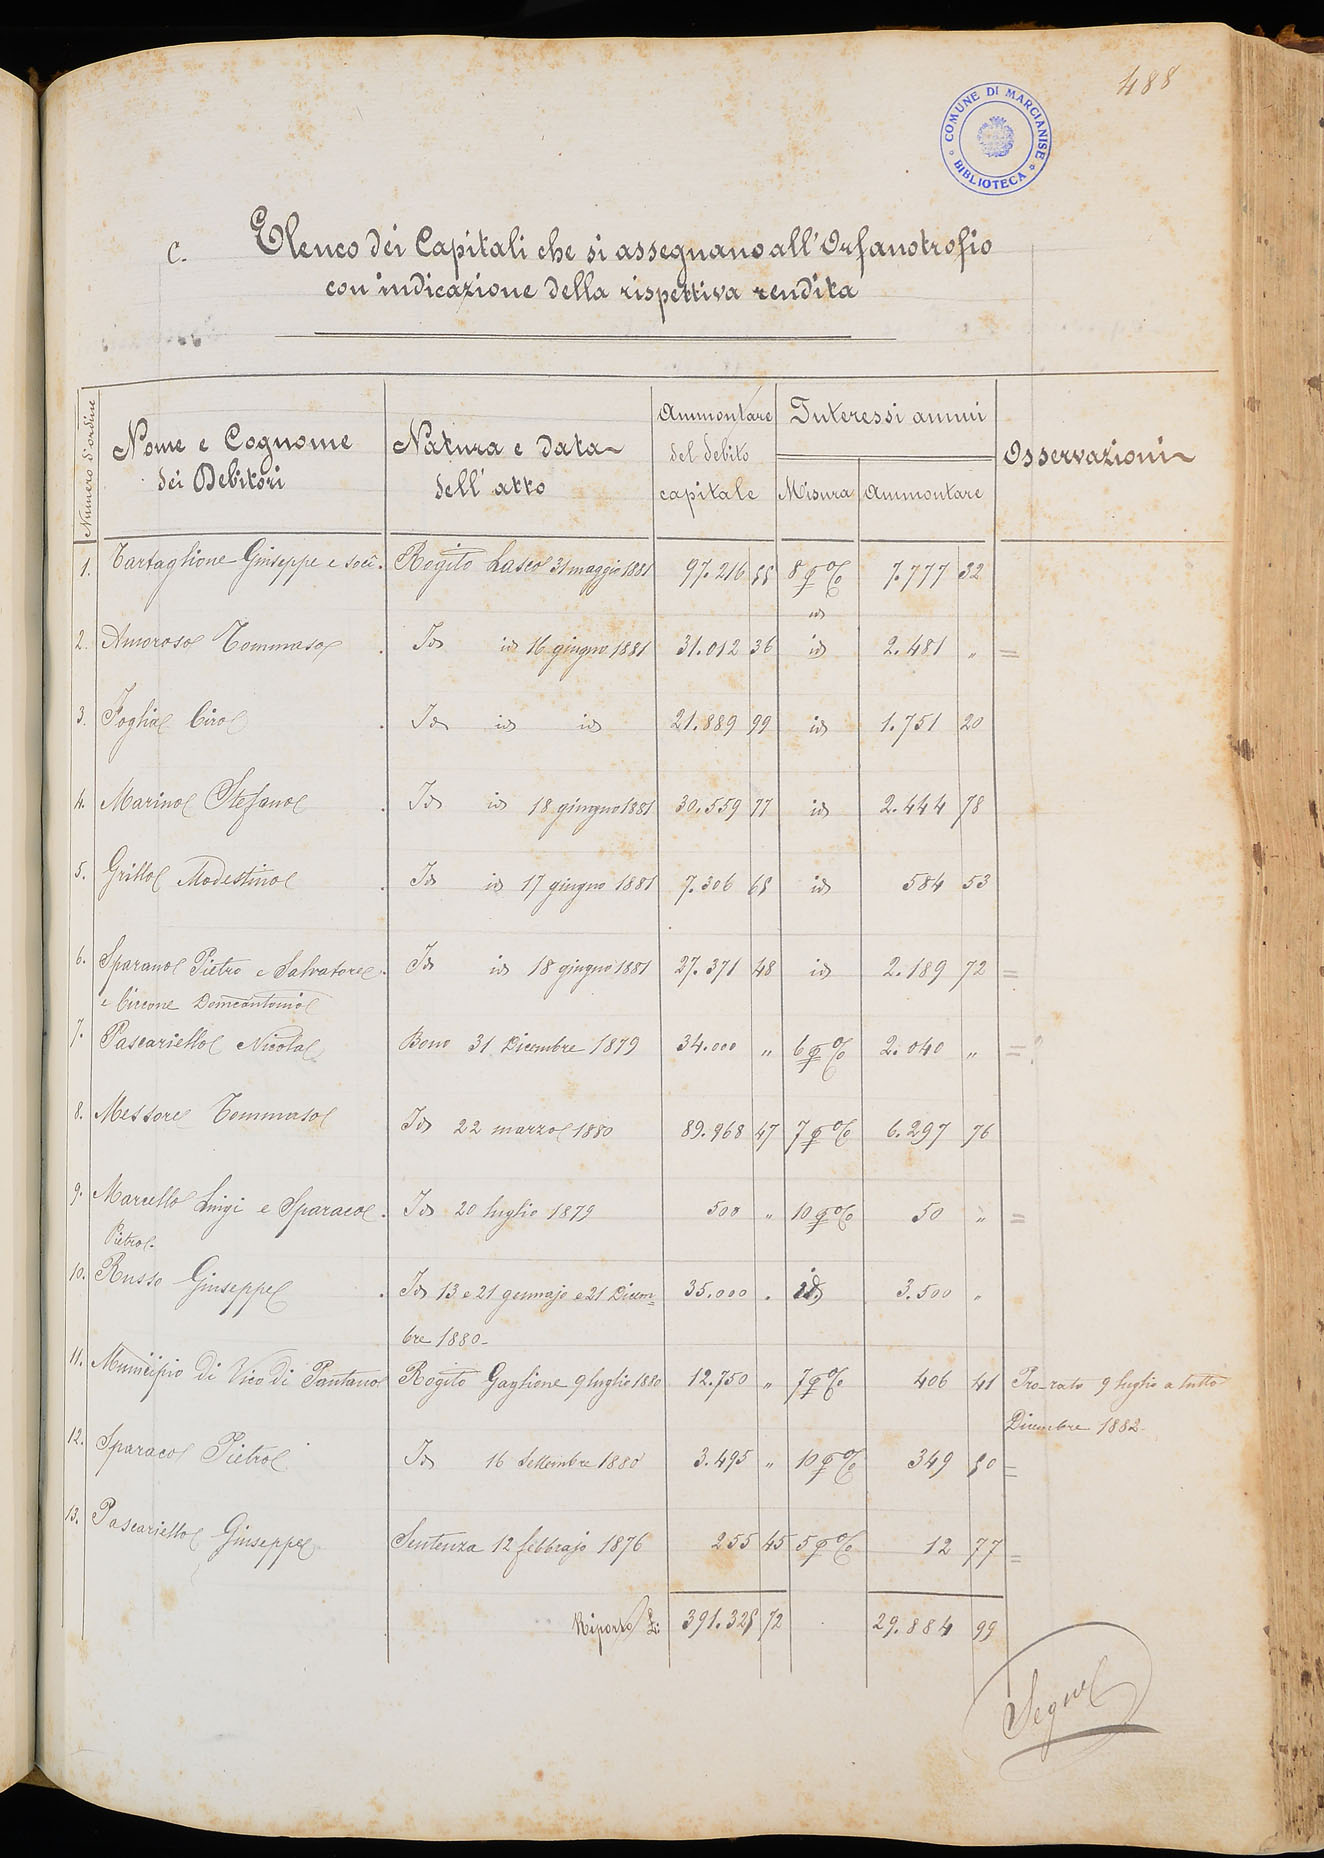 488
COMUNE DI MARCIANISE
BIBLIOTECA
C. Elenco dei Capitali che si assegnano all'Orfanotrofio
con indicazione della rispettiva rendita
Numero d'ordine
Nome e Cognome dei Debitori
Natura e data dell'atto
Ammontare del debito capitale
Interessi annui
Misura
Ammontare
Osservazioni
1. Tartaglione Giuseppe e socî. Rogito Lasco 31 maggio 1881 97.216 55 8 p % 7.777 32
id
2. Amoroso Tommaso . Id id 16 giugno 1881 31.012 36 id 2.481 " =
3. Foglia Ciro . Id id id 21.889 99 id 1.751 20
4. Marino Stefano . Id id 18 giugno 1881 30.559 77 id 2.444 78
5. Grillo Modestino . Id id 17 giugno 1881 7.306 65 id 584 53
6. Sparano Pietro e Salvatore . Id id 18 giugno 1881 27.371 48 id 2.189 72 =
e Circone Domeantonio
7. Pascariello Nicola Bono 31 Dicembre 1879 34.000 " 6 p % 2.040 " =
8. Messore Tommaso Id 22 marzo 1880 89.968 47 7 p % 6.297 76
9. Marcello Luigi e Sparaco . Id 20 luglio 1879 500 " 10 p % 50 " =
Pietro.
10. Russo Giuseppe . Id 13 e 21 gennajo e 21 Dicem=
bre 1880- 35.000 . id 3.500 "
11. Municipio di Vico di Pantano Rogito Gaglione 9 luglio 1880 12.750 " 7 p % 406 41 Pro-rato 9 luglio a tutto
Dicembre 1882.
12. Sparaco Pietro Id 16 Settembre 1880 3.495 " 10 p % 349 50 =
13. Pascariello Giuseppe Sentenza 12 febbrajo 1876 255 45 5 p % 12 77 =
Riporto £: 391.325 72 29.884 99
Segue